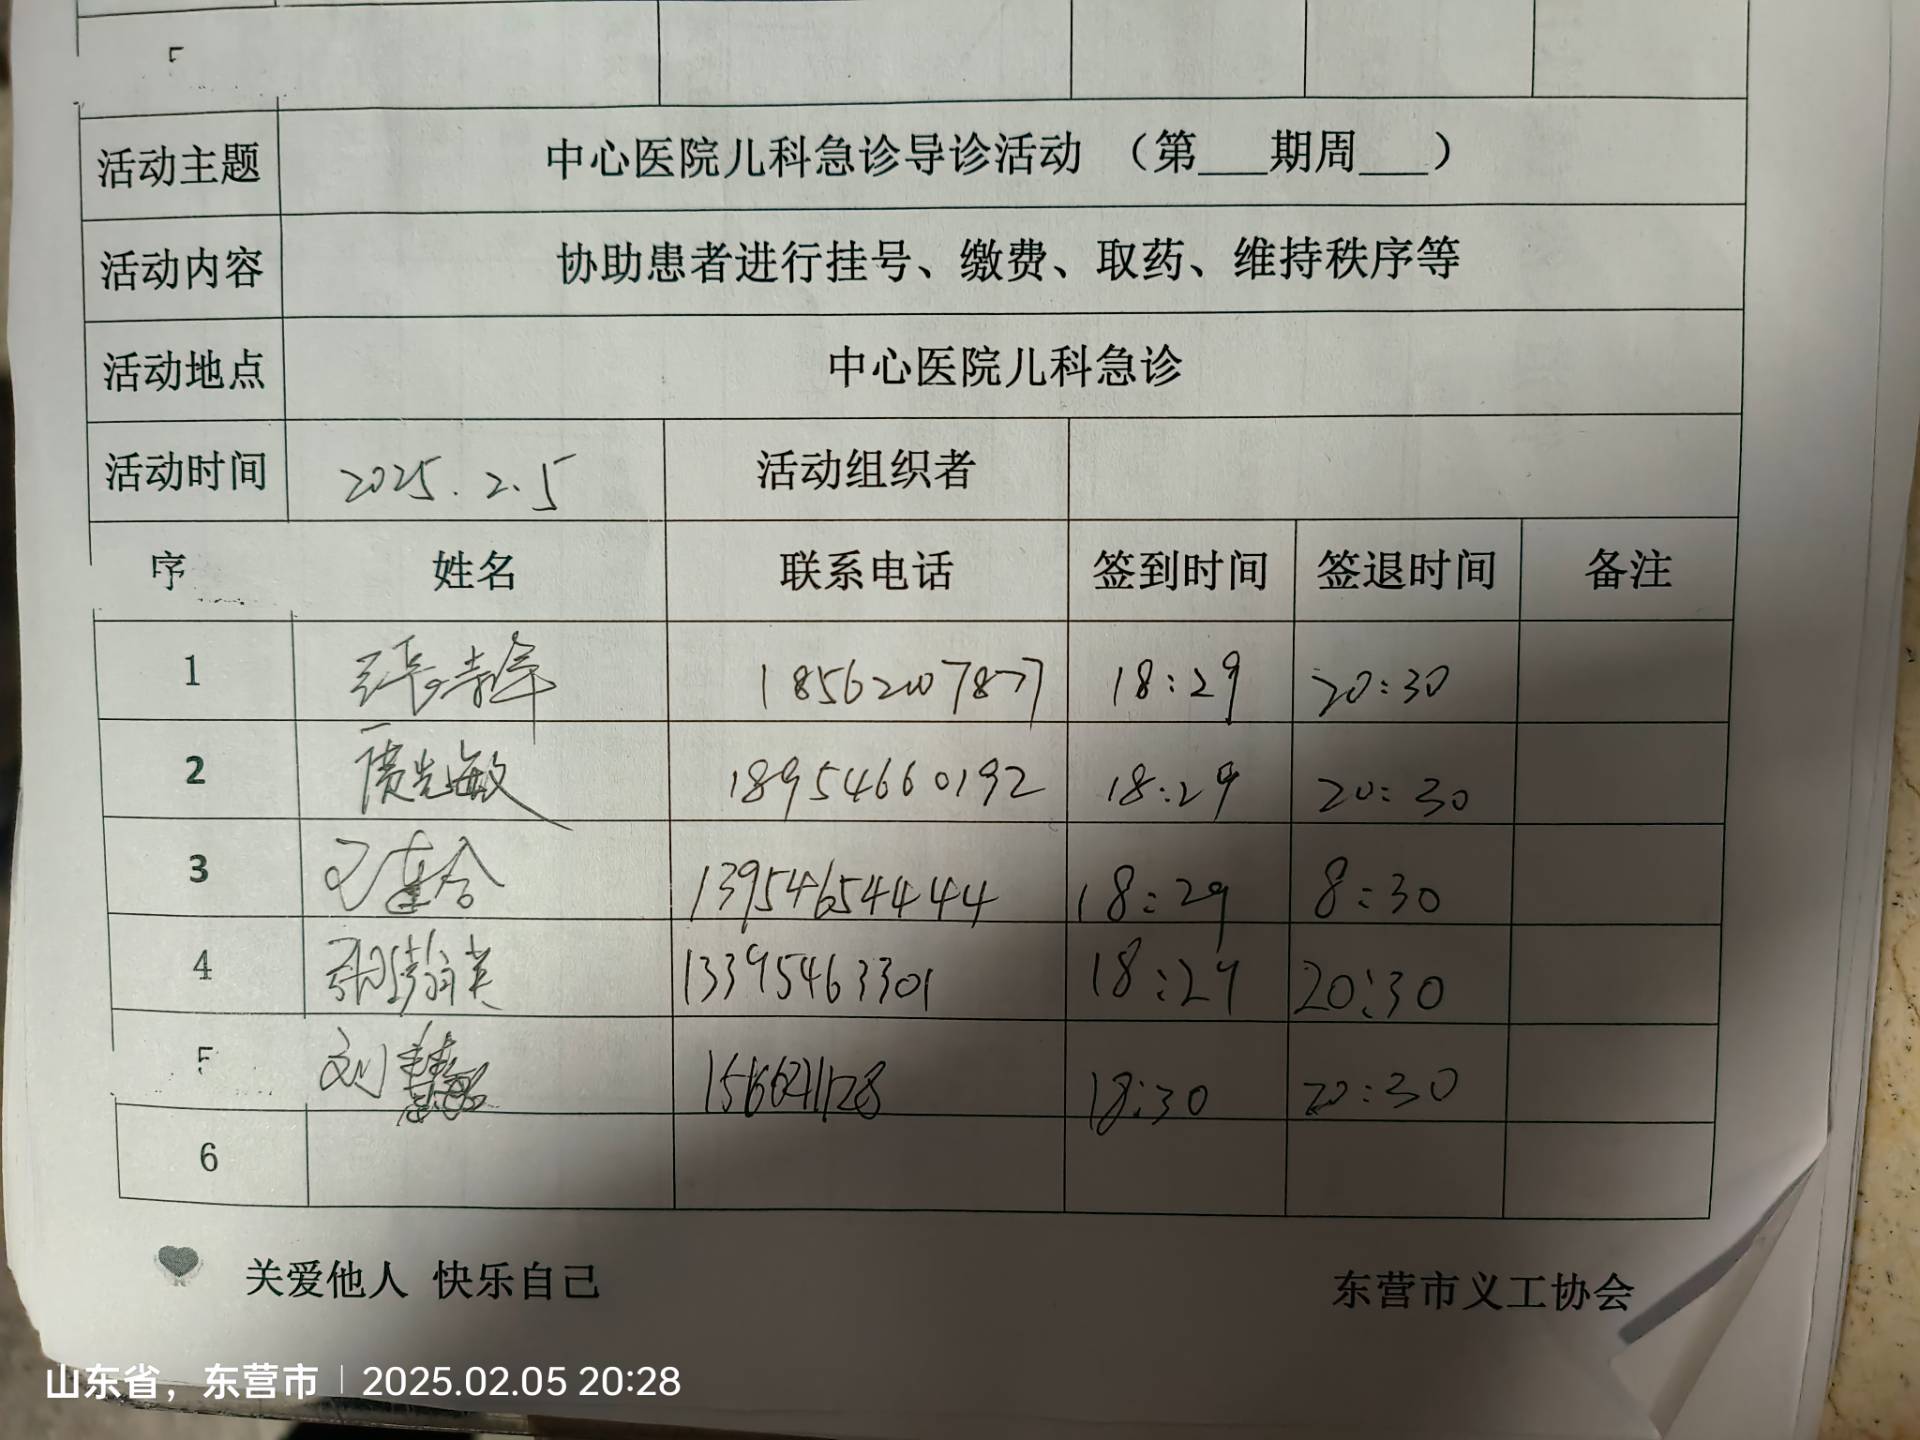 5
活动主题 中心医院儿科急诊导诊活动 （第___期周___）
活动内容 协助患者进行挂号、缴费、取药、维持秩序等
活动地点 中心医院儿科急诊
活动时间 2025.2.5 活动组织者
序 姓名 联系电话 签到时间 签退时间 备注
1 18562007877 18:29 20:30
2 18954660192 18:29 20:30
3 13954654444 18:29 8:30
4 13395463301 18:29 20:30
5 刘慧 18:30 20:30
6
关爱他人 快乐自己 东营市义工协会
山东省，东营市 2025.02.05 20:28